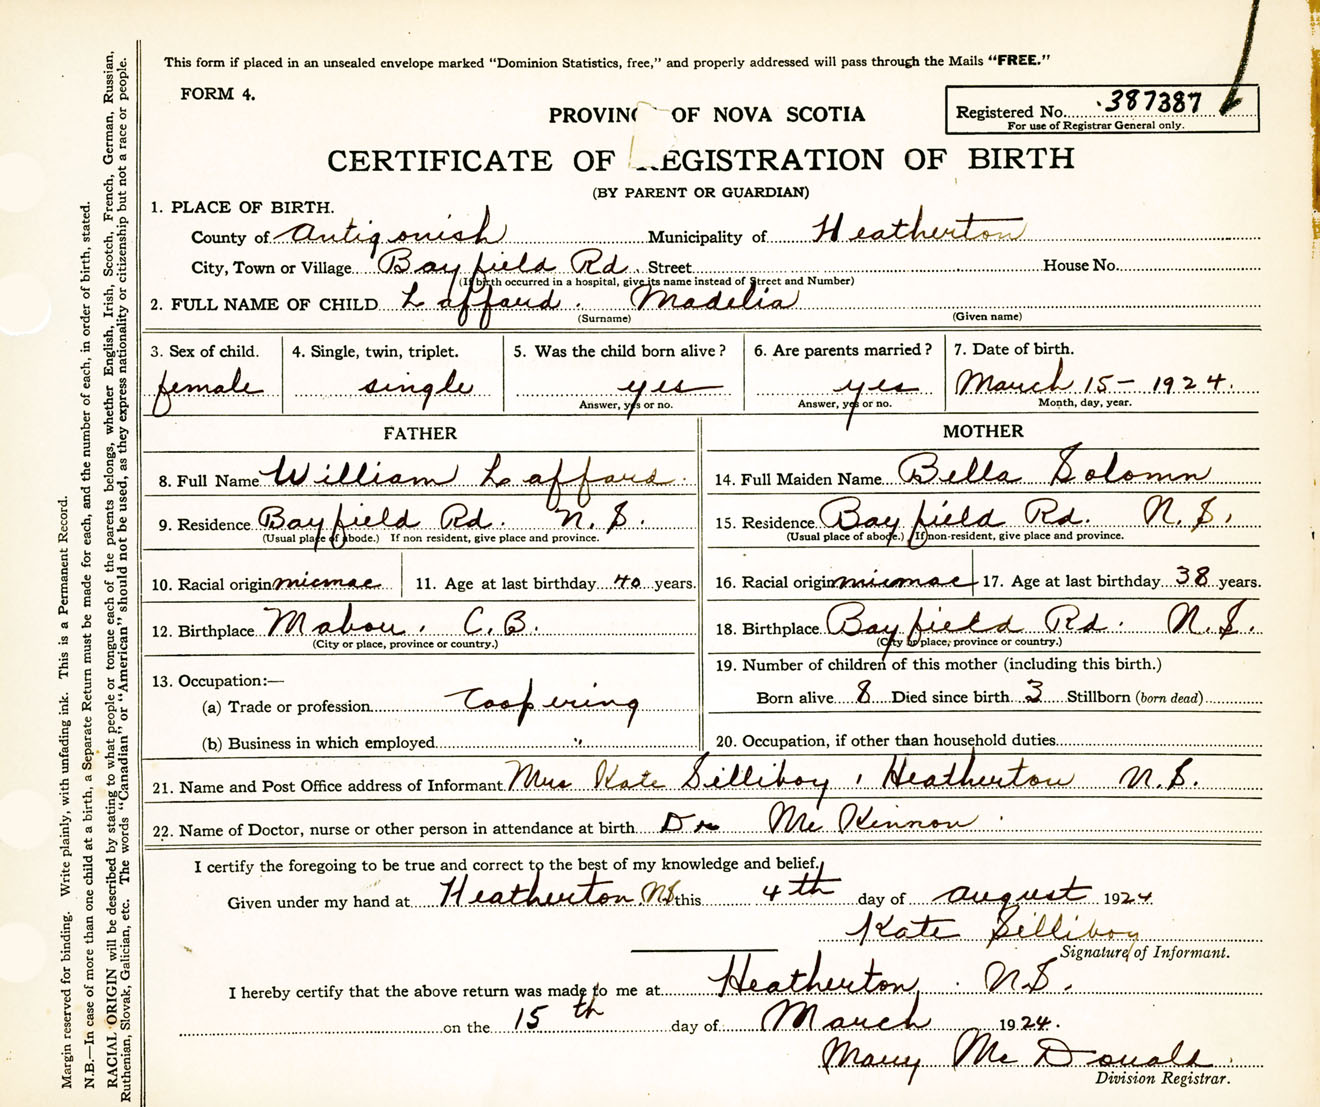 This form if placed in an unsealed envelope marked "Dominion Statistics, free," and properly addressed will pass through the Mails "FREE."
FORM 4.
Registered No. 387387
For use of Registrar General only.
PROVINC OF NOVA SCOTIA
CERTIFICATE OF REGISTRATION OF BIRTH
(BY PARENT OR GUARDIAN)
1. PLACE OF BIRTH.
County of Antigonish Municipality of Heatherton
City, Town or Village Bayfield Rd. Street House No.
(If birth occurred in a hospital, give its name instead of Street and Number)
2. FULL NAME OF CHILD Laffard. Madelia
(Surname) (Given name)
3. Sex of child. 4. Single, twin, triplet. 5. Was the child born alive? 6. Are parents married? 7. Date of birth.
female single yes yes March 15 - 1924.
Answer, yes or no. Answer, yes or no. Month, day, year.
FATHER MOTHER
8. Full Name William Laffard. 14. Full Maiden Name Bella Solomn
9. Residence Bayfield Rd. N.S. 15. Residence Bayfield Rd. N.S.
(Usual place of abode.) If non resident, give place and province. (Usual place of abode.) If non-resident, give place and province.
10. Racial origin micmac 11. Age at last birthday 40 years. 16. Racial origin micmac 17. Age at last birthday 38 years.
12. Birthplace Mabou. C.B. 18. Birthplace Bayfield Rd. N.S.
(City or place, province or country.) (City or place, province or country.)
19. Number of children of this mother (including this birth.)
13. Occupation:—
(a) Trade or profession Coopering Born alive 8 Died since birth 3 Stillborn (born dead)
(b) Business in which employed " 20. Occupation, if other than household duties
21. Name and Post Office address of Informant Mrs Kate Silliboy, Heatherton N.S.
22. Name of Doctor, nurse or other person in attendance at birth Dr McKinnon
I certify the foregoing to be true and correct to the best of my knowledge and belief.
Given under my hand at Heatherton NS this 4th day of August 1924
Kate Silliboy
Signature of Informant.
I hereby certify that the above return was made to me at Heatherton. N.S.
on the 15th day of March 1924.
Mary McDonald
Division Registrar.
Margin reserved for binding. Write plainly, with unfading ink. This is a Permanent Record.
N.B.—In case of more than one child at a birth, a Separate Return must be made for each, and the number of each, in order of birth, stated.
RACIAL ORIGIN will be described by stating to what people or tongue each of the parents belongs, whether English, Irish, Scotch, French, German, Russian,
Ruthenian, Slovak, Galician, etc. The words "Canadian" or "American" should not be used, as they express nationality or citizenship but not a race or people.